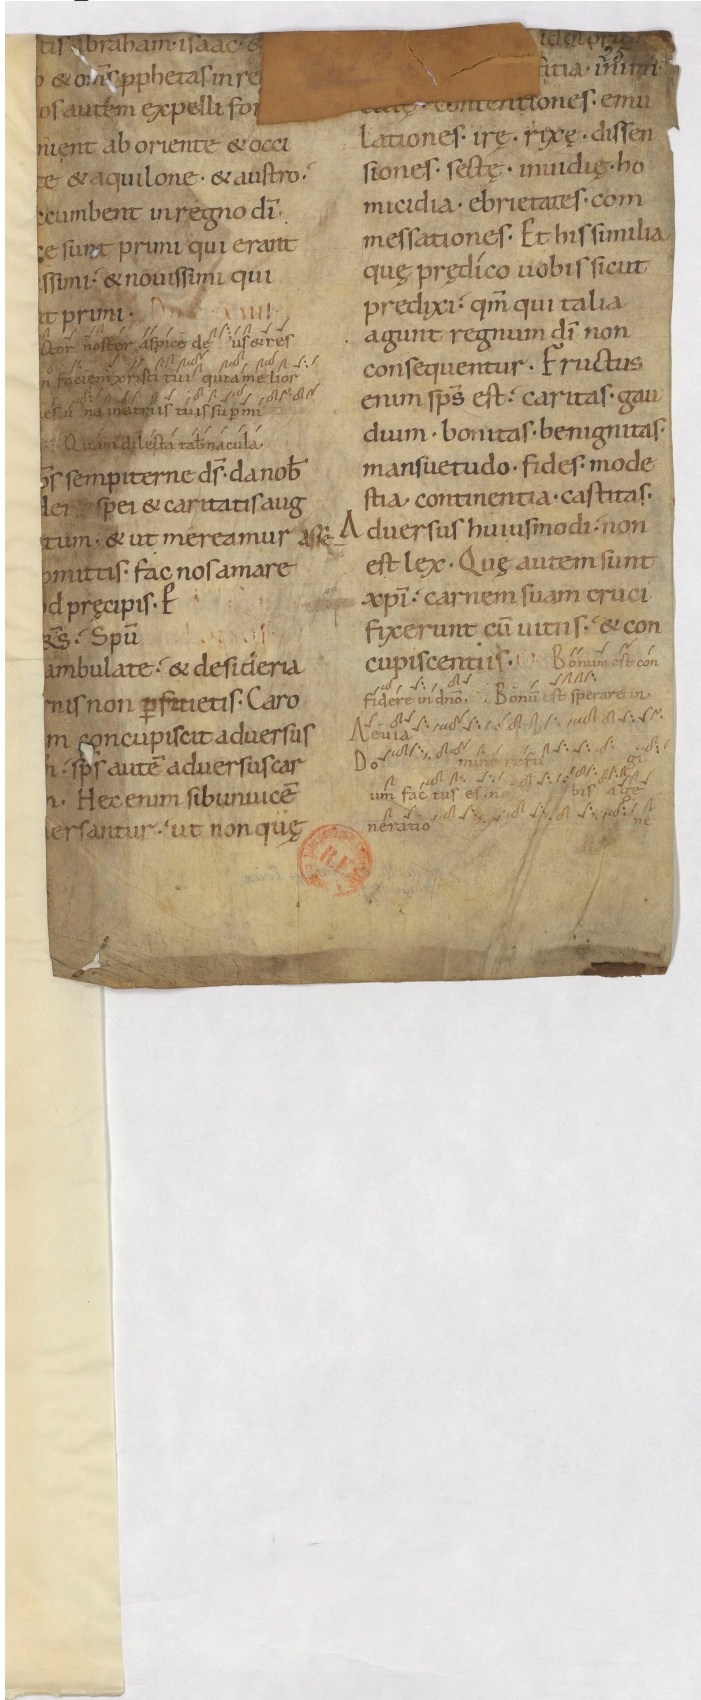 tis abraham · isaac · &
& om̅s pphetas in re
os autem expelli for
nient ab oriente & occi
te & aquilone · & austro ·
cumbent in regno di̅ ·
ce sunt primi qui erant
ssimi · & nouissimi qui
nt primi ·
noster aspice de us & res
faciem xristi tui quia melior
in atriis tuis sup mi
Quam dilecta tab̅nacula ·
sempiterne ds̅ · da nob̅
dei spei & caritatis aug
tum · & ut mereamur asse
omittis · fac nos amare
od pręcipis · P
Sp̅u
ambulate · & desideria
nis non ꝑficietis · Caro
m concupiscit aduersus
sp̅s aute̅ aduersus car
Hec enim sibi inuice̅
uersantur · ut non quę
idolorum
25
inimi
contentiones · emu
lationes · irę · rixę · dissen
siones · sectę · inuidię · ho
micidia · ebrietates · com
messationes · Et his similia
quę prędico uobis sicut
predixi · qm̅ qui talia
agunt regnum di̅ non
consequentur · Fructus
enim sp̅s est · caritas · gau
dium · bonitas · benignitas ·
mansuetudo · fides · mode
stia · continentia · castitas ·
Aduersus huiusmodi · non
est lex · Quę autem sunt
xp̅i · carnem suam cruci
fixerunt cu̅ uitiis · & con
cupiscentiis · Bonum est con
fidere in dn̅o · Bonu̅ est sperare in
Aeuia
Do mine refu gi
um fac tus es no bis a ge
neratio ne
R.F.